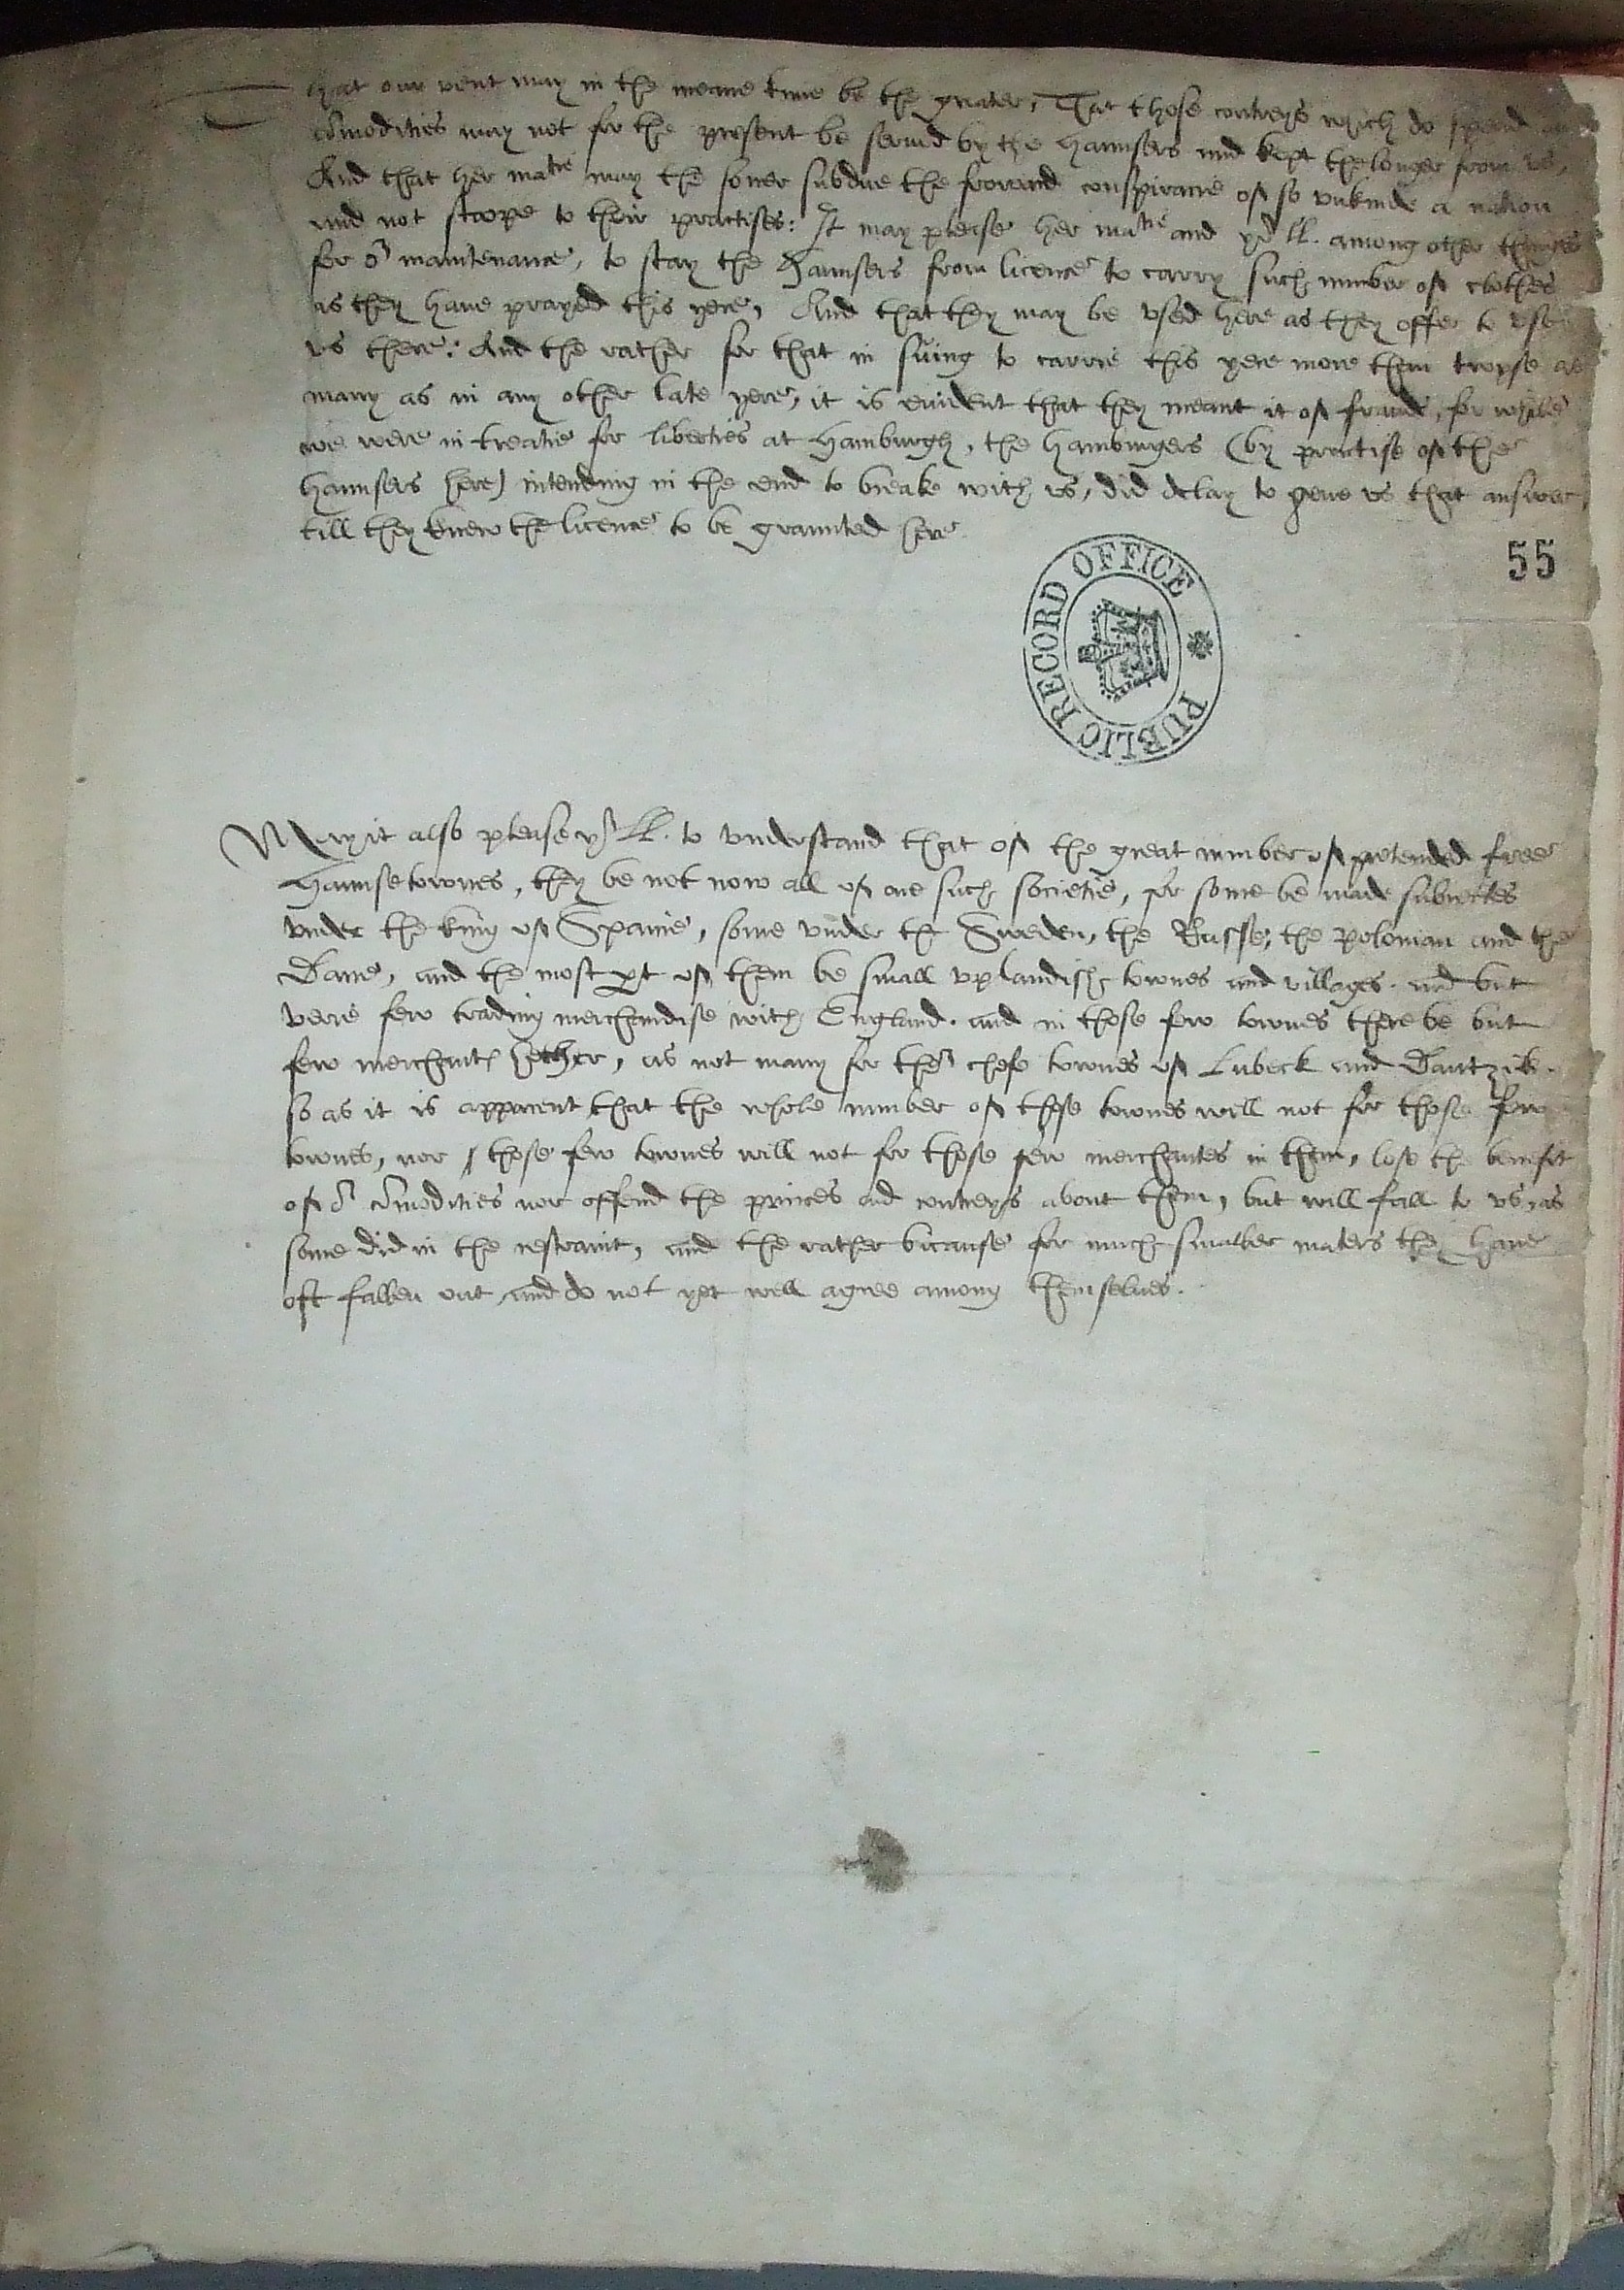 That our vent may in the meane time be the greater, That those contreys which do spend our
comodities may not for the present be serued by the Haunsers and kept the longer from vs,
And that her matie may the soner subdue the froward conspiracie of so vnkinde a nation
and not stoope to their practises: It may please her matie and yor ll. among other thinges
for or maintenance, to stay the Haunsers from licence to carry such number of clothes
as they haue prayed this yere, And that they may be vsed here as they offer to vse
vs there: And the rather for that in suing to carrie this yere more then twyse as
many as in any other late yere, it is euident that they meant it of fraude, for while
we were in treatie for liberties at Hamburgh, the Hamburgers (by practise of the
Haunsers here) intending in the end to breake with vs, did delay to geue vs that answer,
till they knew the licence to be graunted here.
55
PUBLIC RECORD OFFICE
May it also please yor ll. to vnderstand that of the great number of pretended free
Haunse townes, they be not now all of one such societie, for some be made subiectes
vnder the king of Spaine, some vnder the Sweden, the Russe, the Polonian and the
Dane, and the most pt of them be small vplandish townes and villages. and but
verie few trading merchandise with England. and in those few townes there be but
few merchants hether, as not many for the chefe townes of Lubeck and Dantzik.
so as it is apparent that the whole number of those townes will not for those few
townes, nor those few townes will not for those few merchantes in them, lose the benefit
of or comodities nor offend the princes and contreys about them, but will fall to vs, as
some did in the restraint, and the rather bicause for much smaller maters they haue
oft fallen out, and do not yet well agree among themselues.